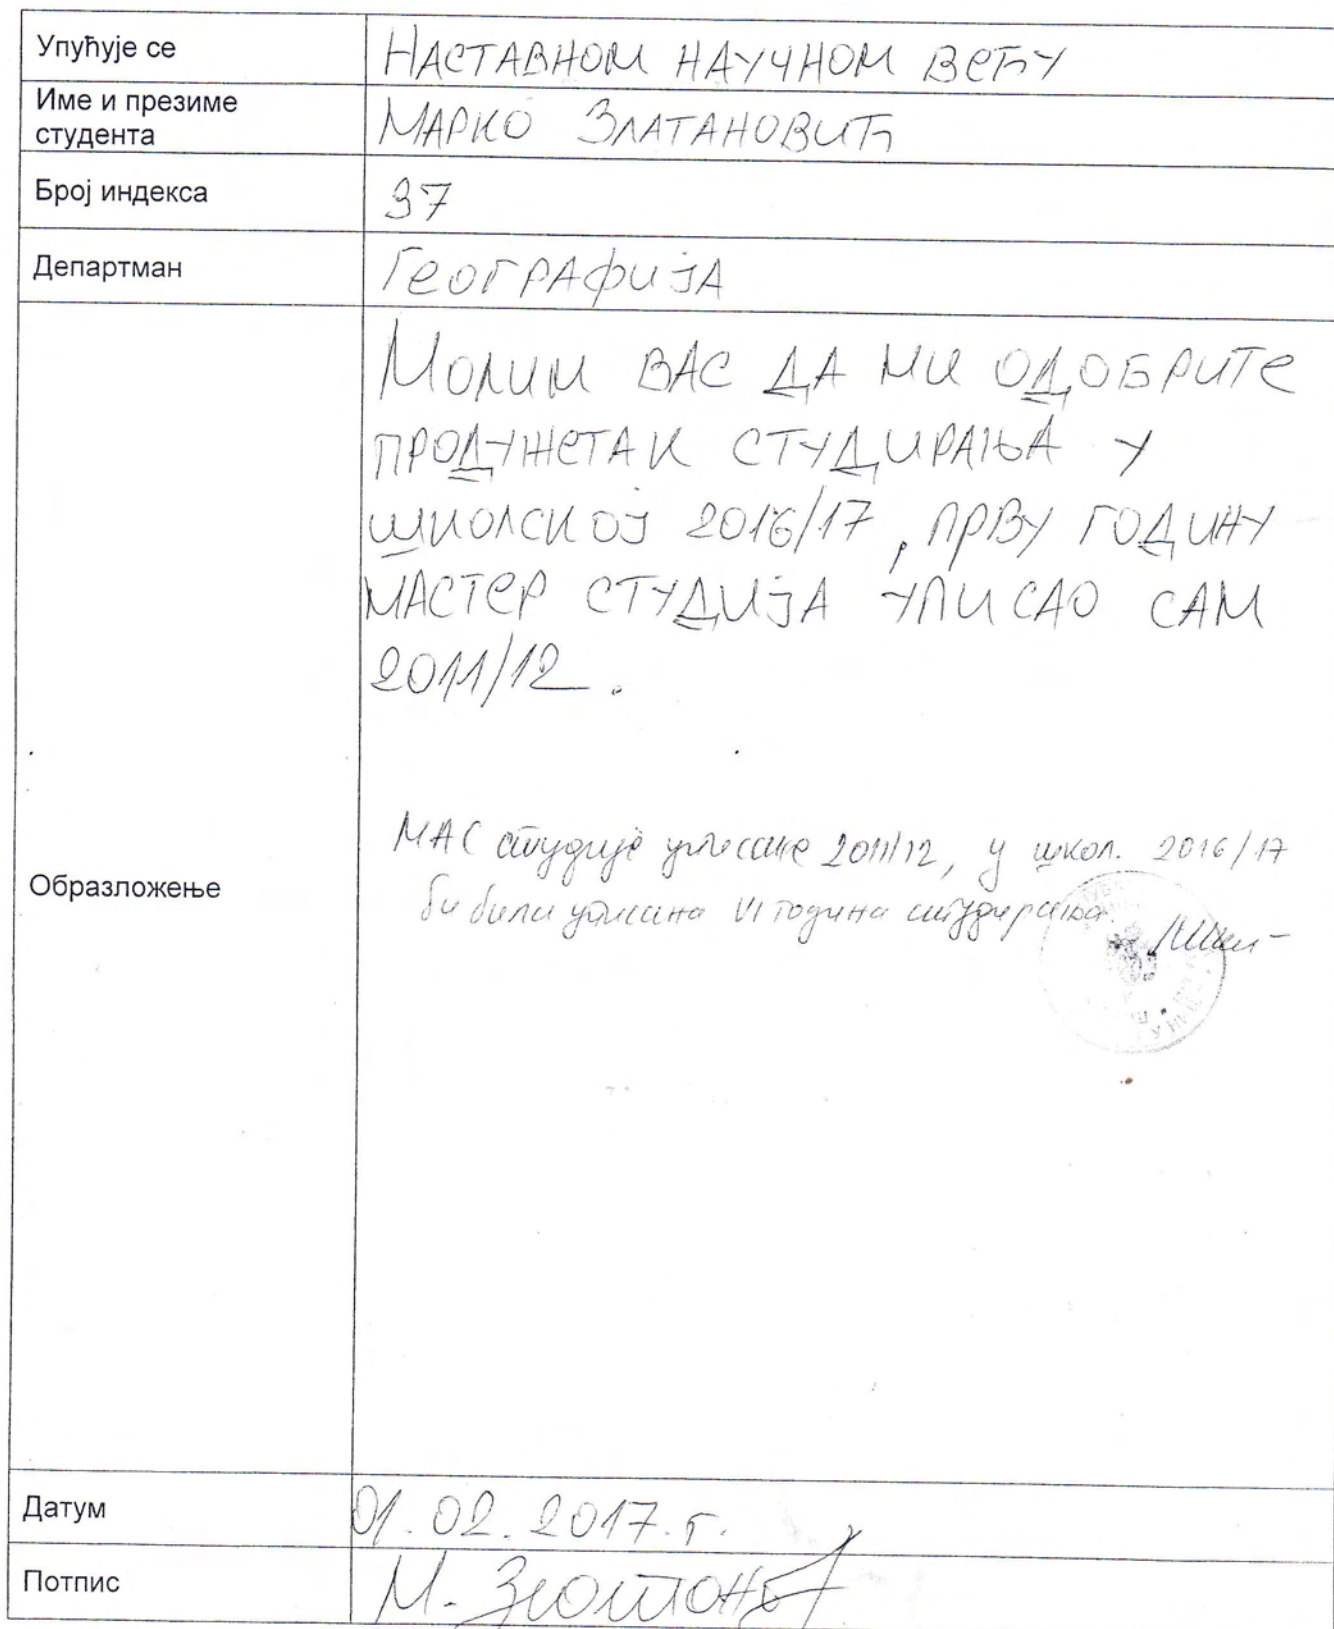 Упућује се
НАСТАВНОМ НАУЧНОМ ВеЋУ
Име и презиме
студента
МАРКО ЗЛАТАНОВИЋ
Број индекса
37
Департман
ГеоГРАФИЈА
МОЛИМ ВАС ДА МИ ОДОБРИТе
ПРОДУЖеТАК СТУДИРАЊА У
ШКОЛСКОЈ 2016/17, ПРВУ ГОДИНУ
МАСТеР СТУДИЈА УПИСАО САМ
2011/12.
Образложење
МАС студије уписане 2011/12, у школ. 2016/17
би била уписана VI година студирања.
Датум
01.02.2017.г.
Потпис
М.